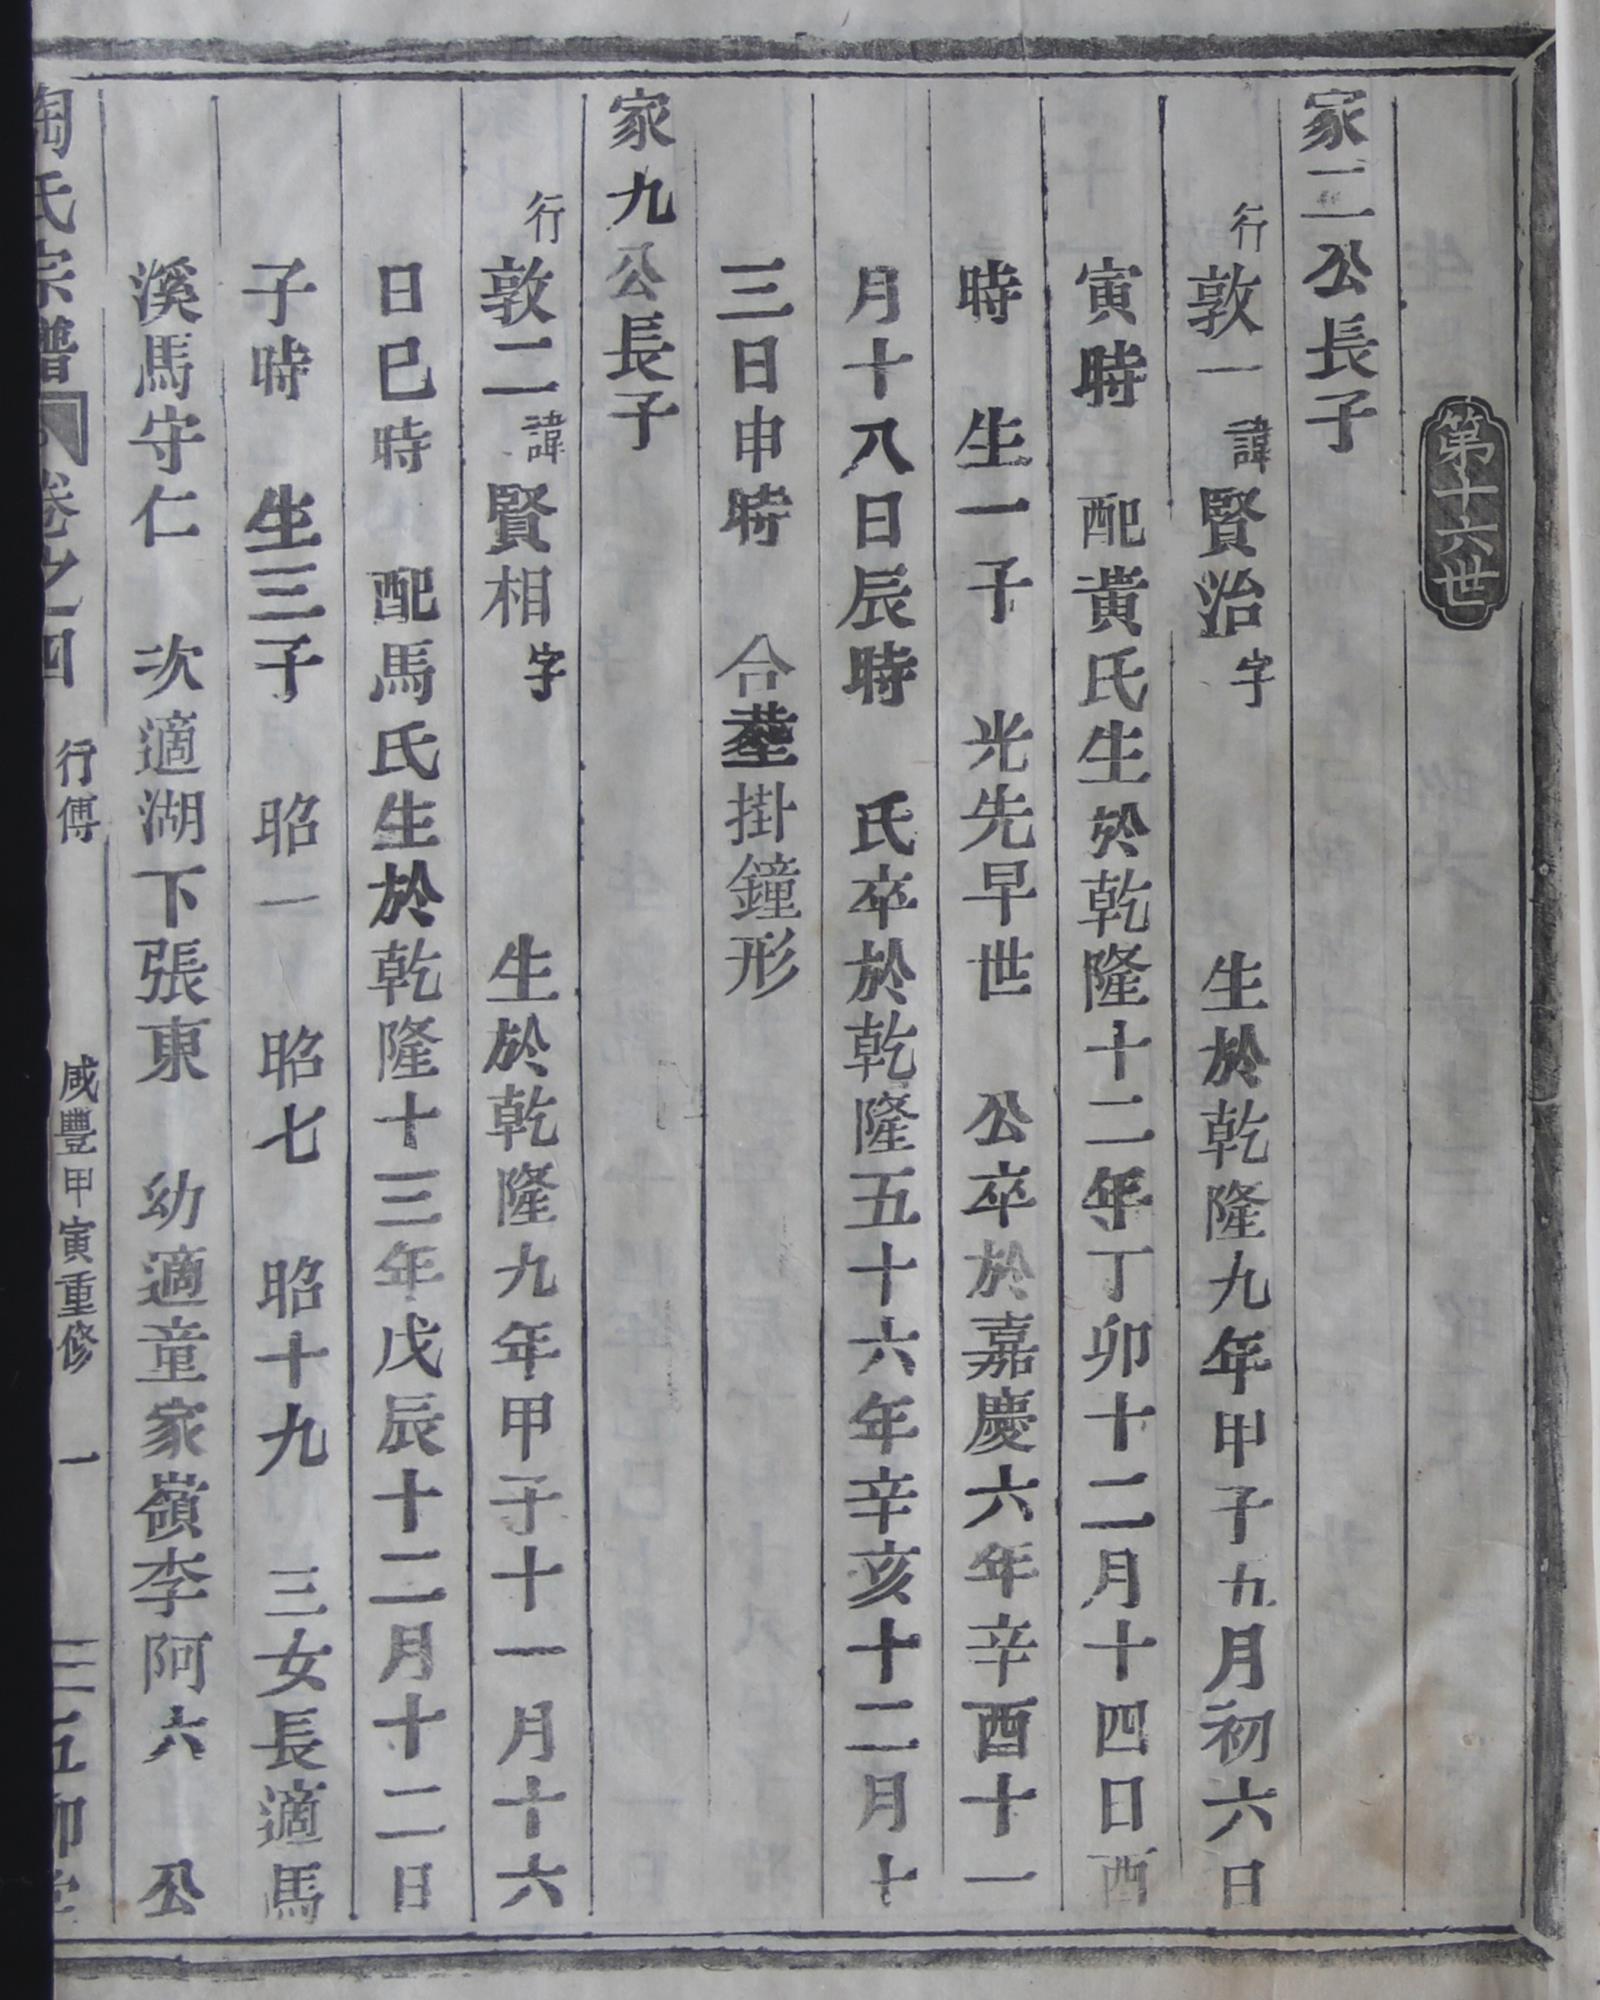 第十六世
家二公長子
行敦一諱賢治字 生於乾隆九年甲子五月初六日
寅時 配黃氏生於乾隆十二年丁卯十二月十四日酉
時 生一子 光先早世 公卒於嘉慶六年辛酉十一
月十八日辰時 氏卒於乾隆五十六年辛亥十二月十
三日申時 合塟掛鐘形
家九公長子
行敦二諱賢相字 生於乾隆九年甲子十一月十六
日巳時 配馬氏生於乾隆十三年戊辰十二月十二日
子時 生三子 昭一 昭七 昭十九 三女長適馬
溪馬守仁 次適湖下張東 幼適童家嶺李阿六 公
陶氏宗譜 卷之四 行傅 咸豐甲寅重修 一 五柳堂